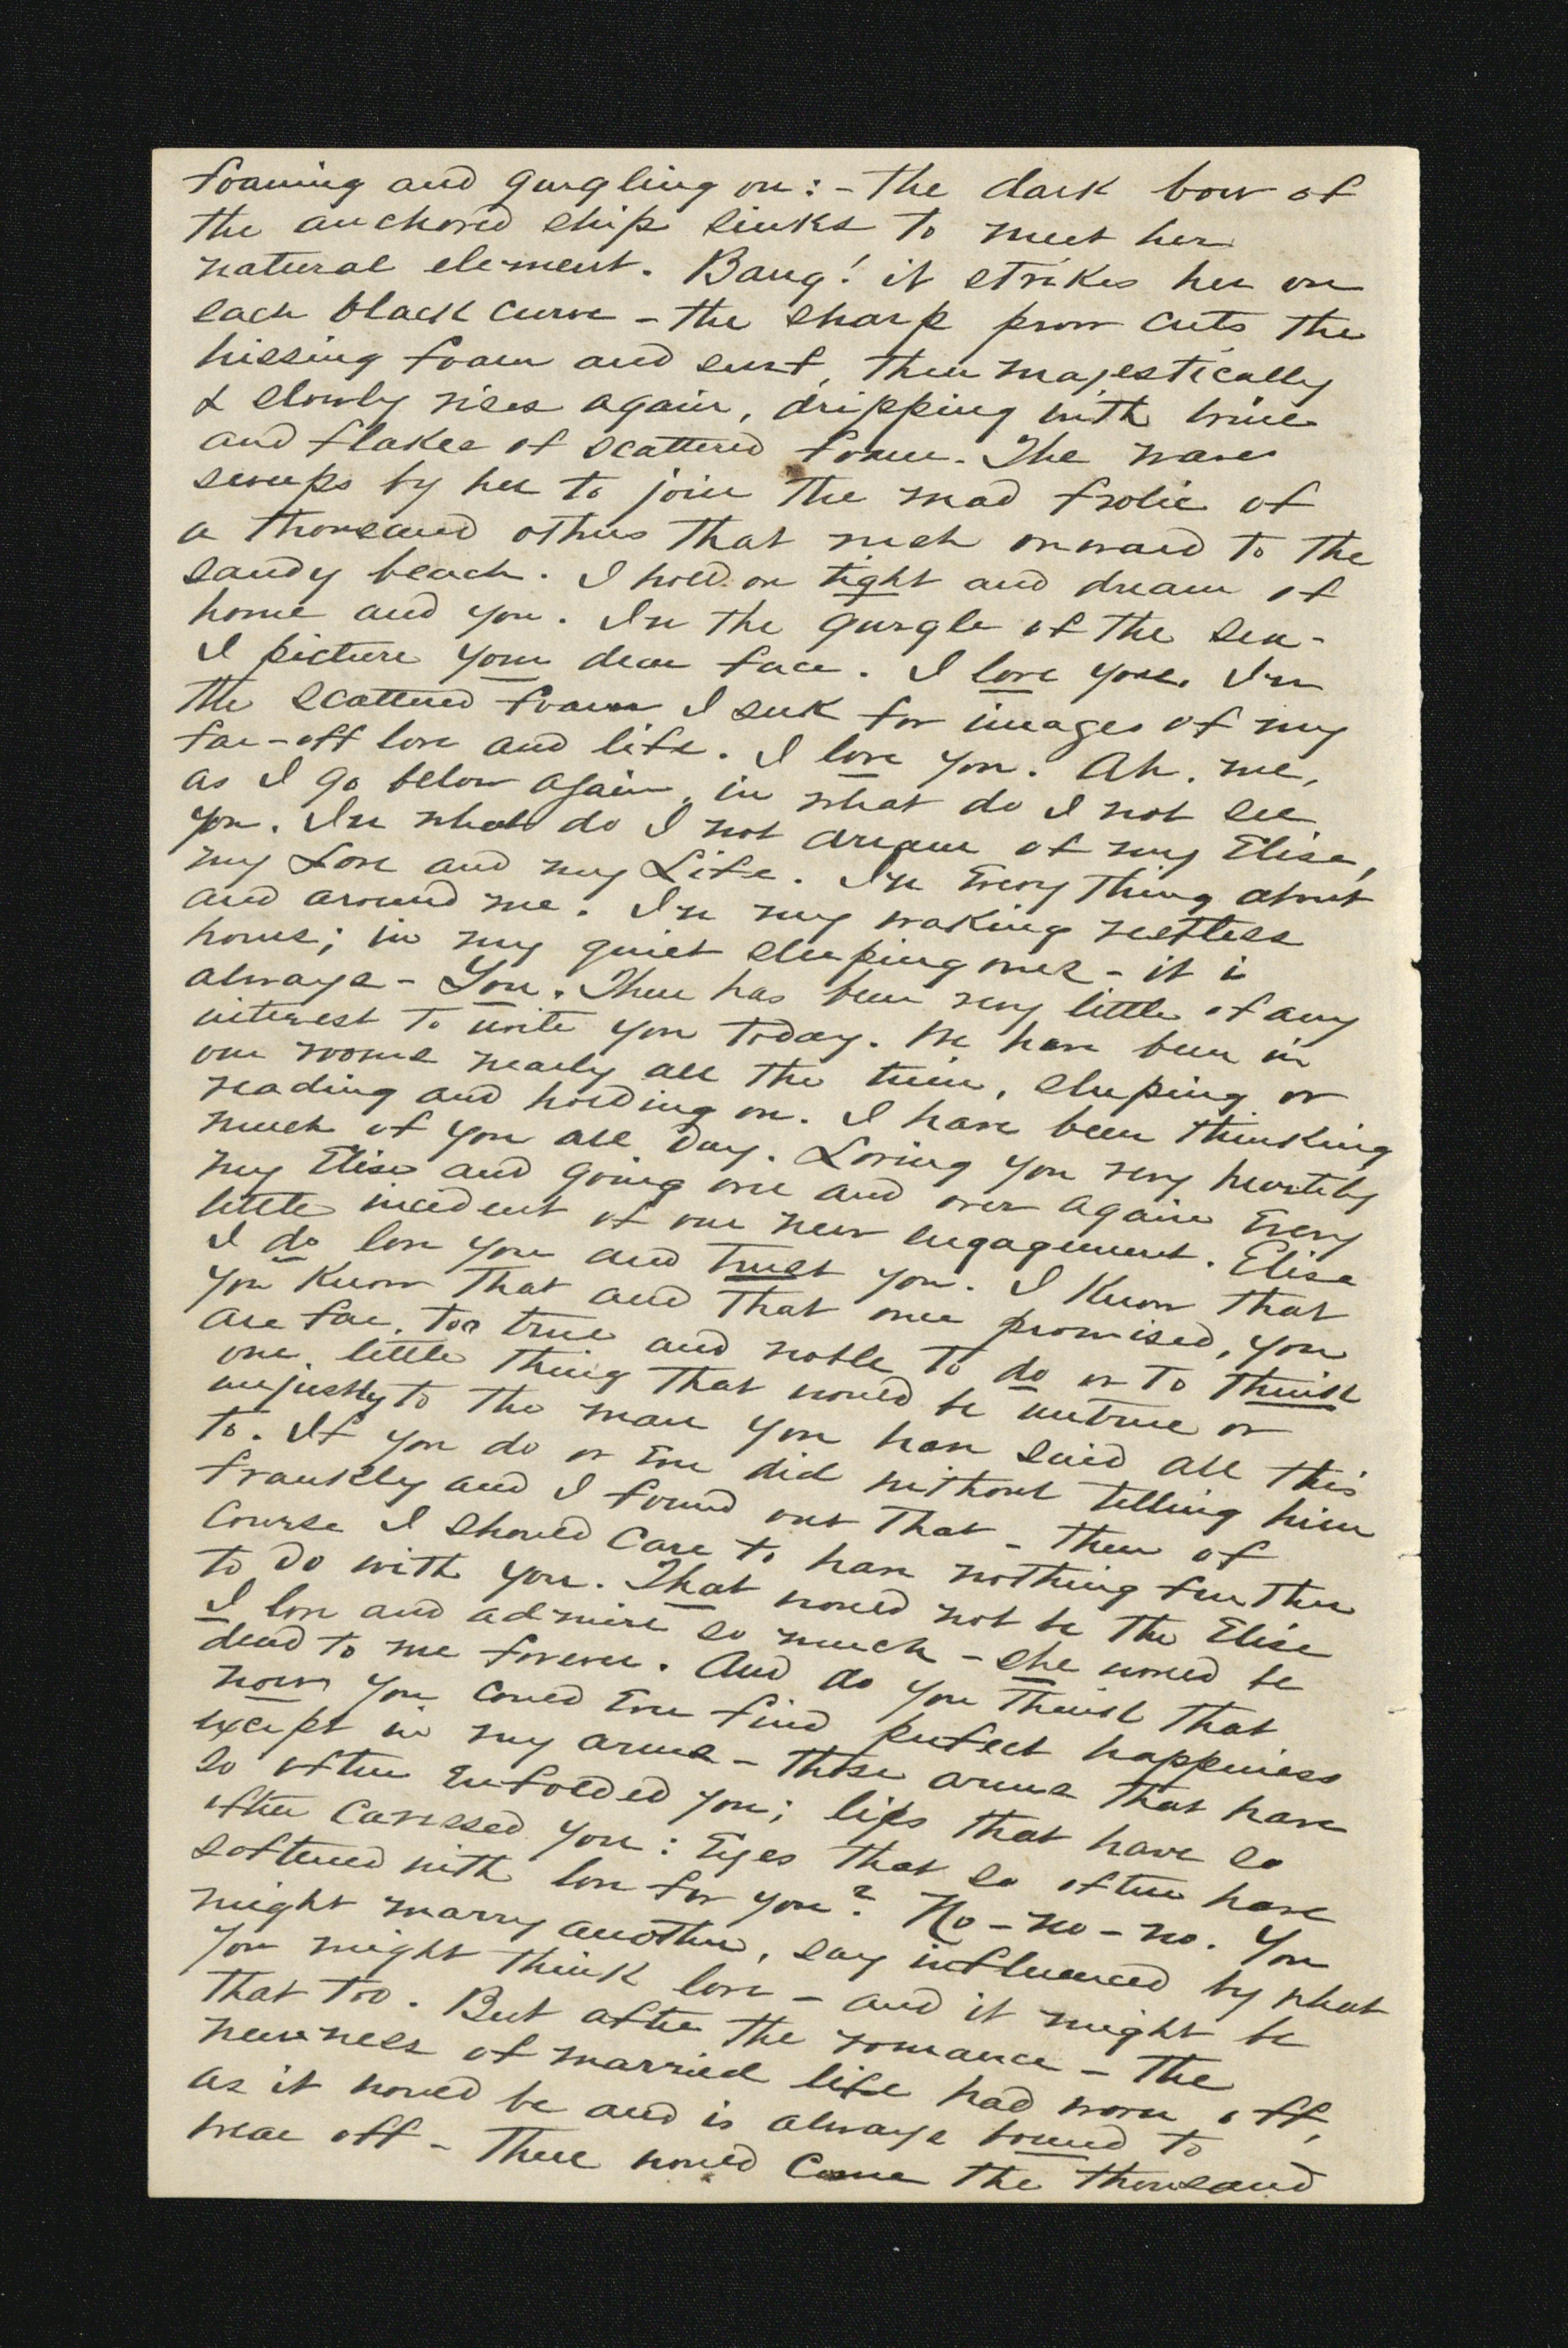 foaming and gurgling on: - the dark bow of
the anchored ship sinks to meet her
natural element. Bang! it strikes her on
each black curve - the sharp prow cuts the
hissing foam and surf, then majestically
& slowly rises again, dripping with brine
and flakes of scattered foam. The wave
sweeps by her to join the mad frolic of
a thousand others that rush onward to the
sandy beach. I hold on tight and dream of
home and you. In the gurgle of the sea -
I picture your dear face. I love you. In
the scattered foam I seek for images of my
far-off love and life. I love you. Ah, me,
as I go below again, in what do I not see
you. In what do I not dream of my Elise,
my Love and my Life. In Every thing about
and around me. In my waking restless
hours; in my quiet sleeping ones - it is
always - You. There has been very little of any
interest to write you today. We have been in
our rooms nearly all the time, sleeping or
reading and holding on. I have been thinking
much of you all day. Loving you very heartily
my Elise and going over and over again Every
little incident of our new engagement. Elise
I do love you and trust you. I know that
you know that and that once promised, you
are far, too true and noble to do or to think
one little thing that would be untrue or
unjustly to the man you have said all this
to. If you do or Ever did without telling him
frankly and I found out that - then of
course I should care to have nothing further
to do with you. That would not be the Elise
I love and admire so much - she would be
dead to me forever. And do you think that
now you could Ever find perfect happiness
except in my arms - those arms that have
so often Enfolded you; lips that have so
often caressed you: Eyes that so often have
softened with love for you? No - no - no. You
might marry another, say influenced by what
you might think love - and it might be
that too. But after the romance - the
newness of married life had worn off,
as it would be and is always bound to
wear off - there would come the thousand